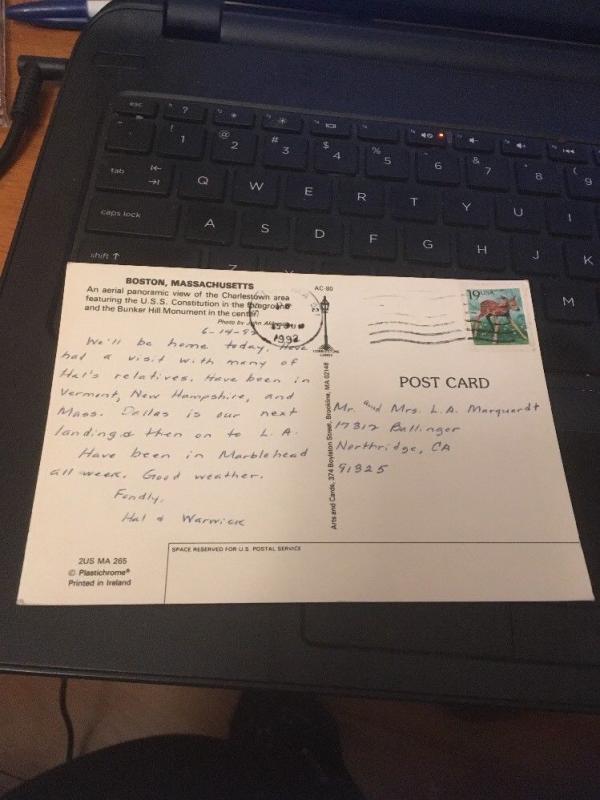 esc
?
!
1
@
2
#
3
$
4
%
5
ˆ
6
&
7
*
8
(
9
tab
Q
W
E
R
T
Y
U
I
caps lock
A
S
D
F
G
H
J
K
shift
Z
M
BOSTON, MASSACHUSETTS
An aerial panoramic view of the Charlestown area
featuring the U.S.S. Constitution in the foreground
and the Bunker Hill Monument in the center.
Photo by John
6-14-92
We'll be home today. Have
had a visit with many of
Hal's relatives. Have been in
Vermont, New Hampshire, and
Mass. Dallas is our next
landing & then on to L.A.
Have been in Marblehead
all week. Good weather.
Fondly,
Hal & Warwick
2US MA 265
© Plastichrome®
Printed in Ireland
AC-80
1992
Arts and Cards, 374 Boylston Street, Brookline, MA 02146
19 USA
POST CARD
Mr. and Mrs. L.A. Marquardt
17312 Ballinger
Northridge, CA
91325
SPACE RESERVED FOR U.S. POSTAL SERVICE